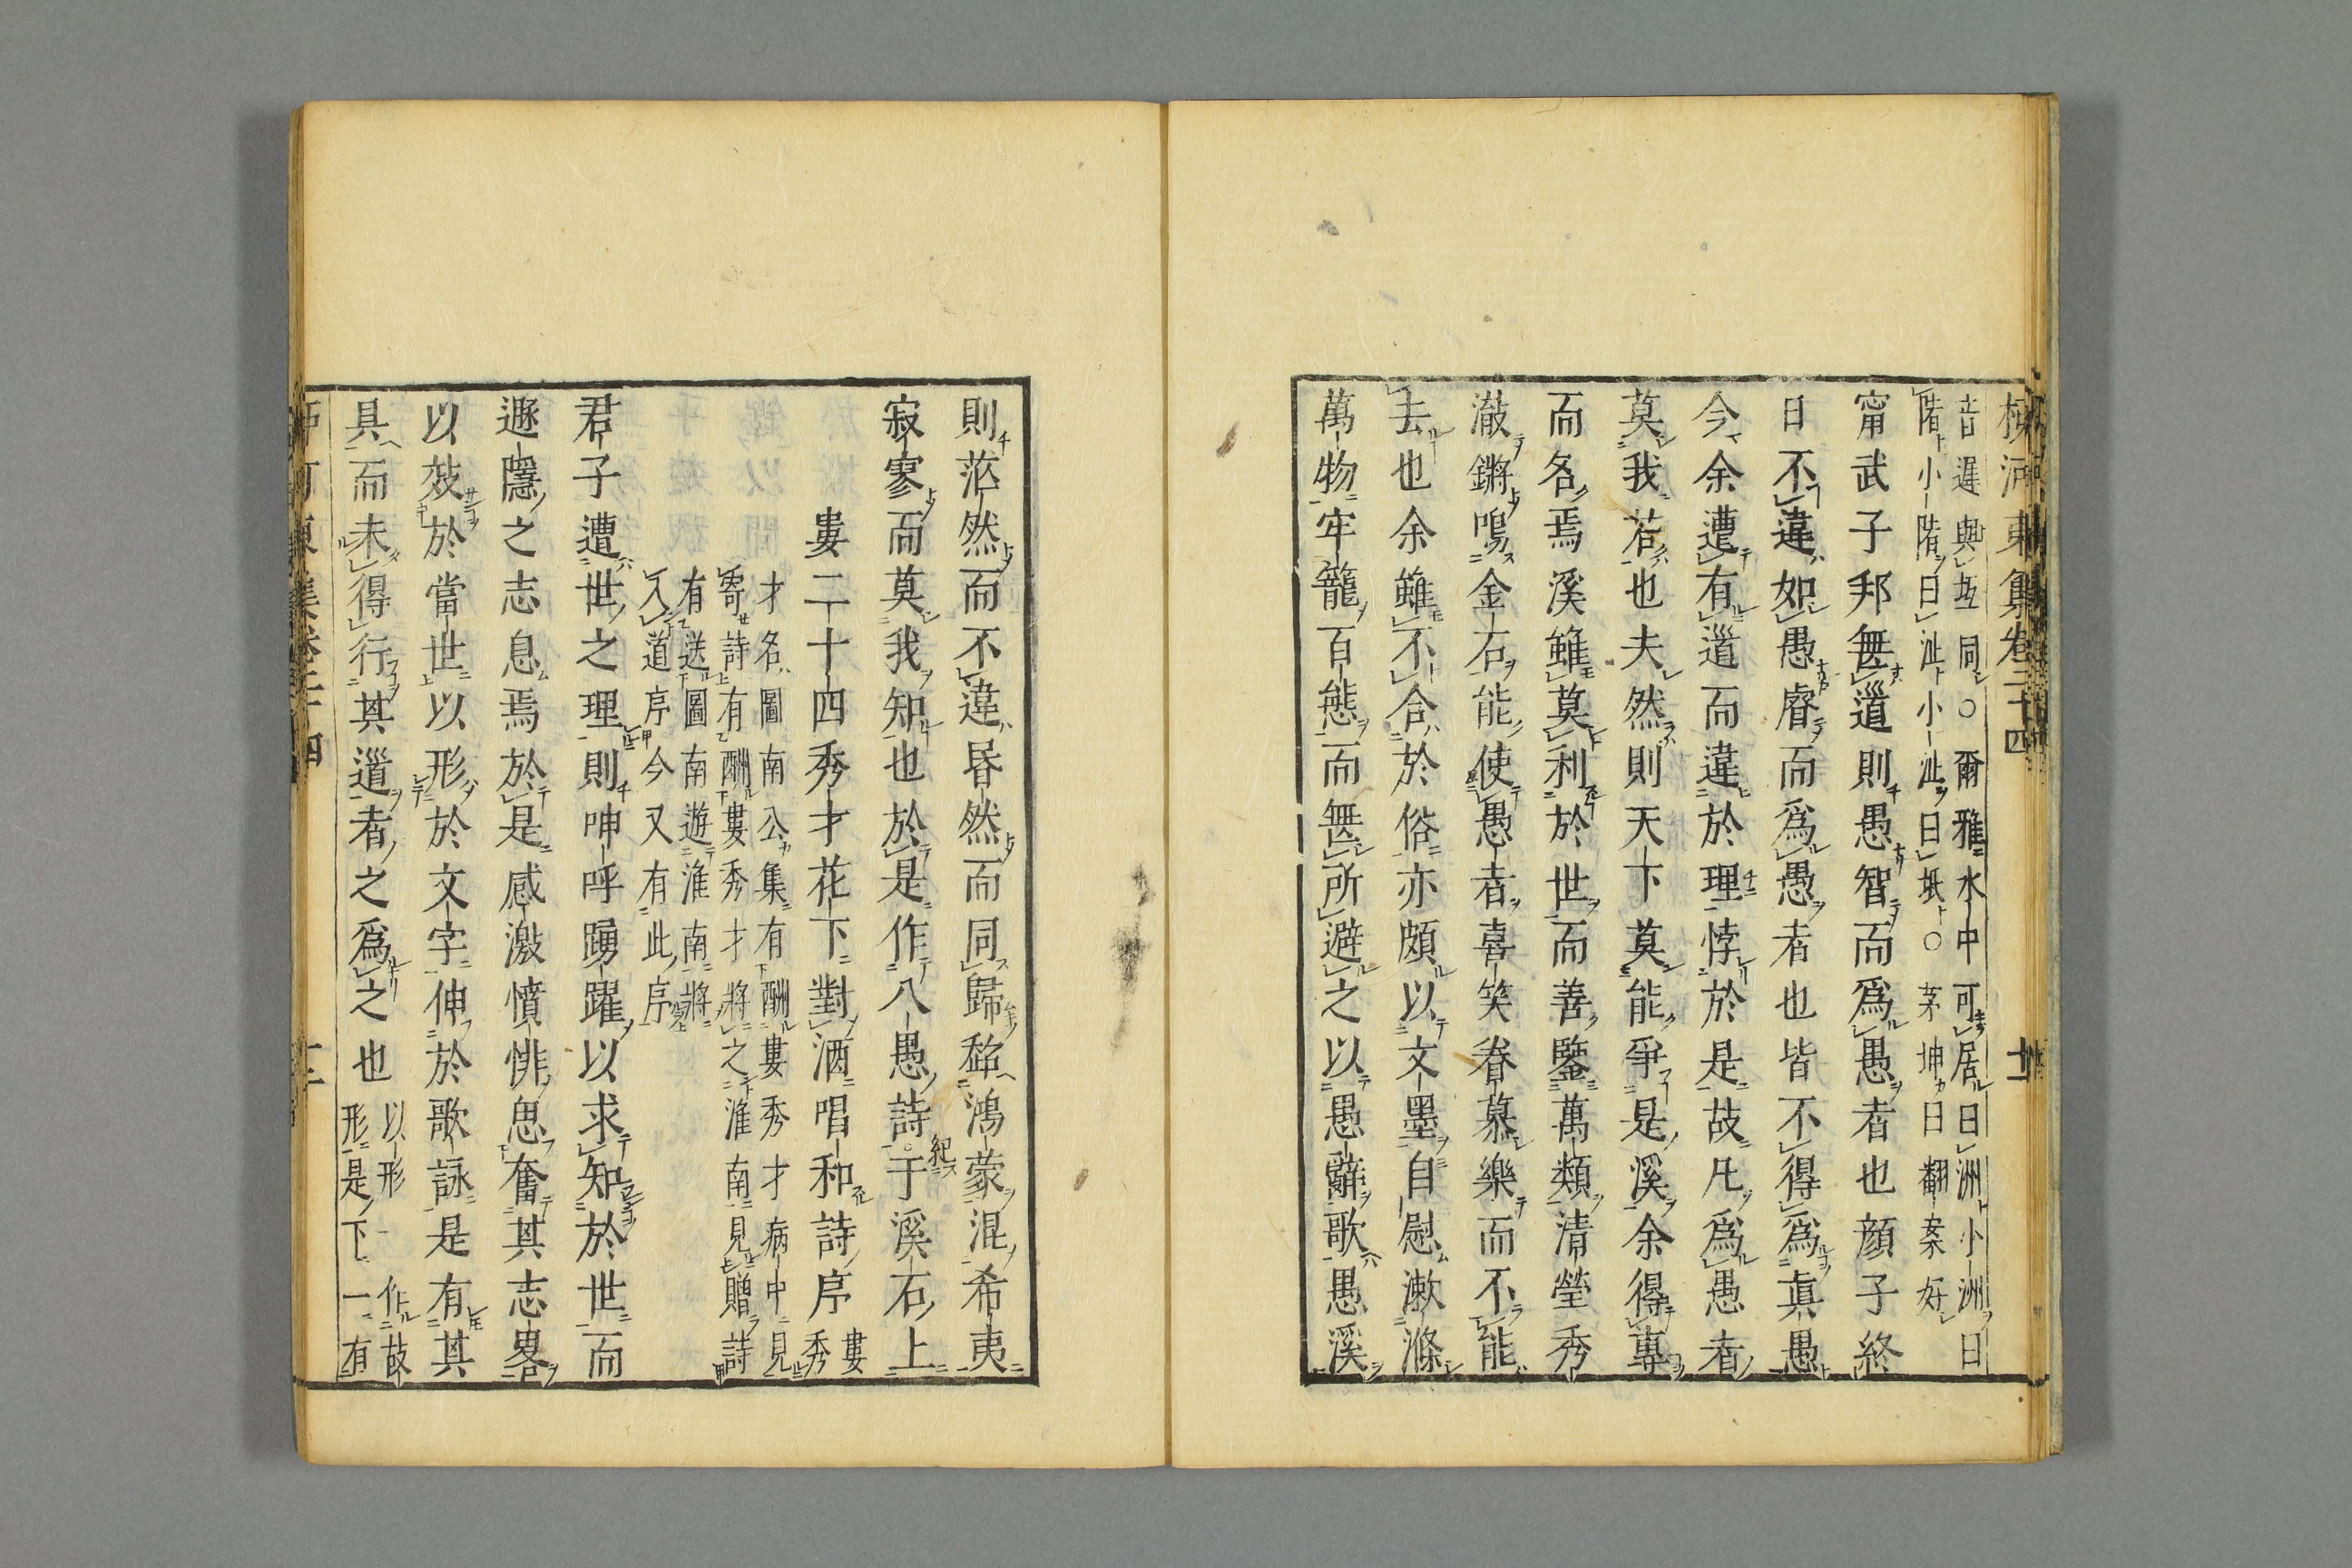 柳河東集卷二十四　十一
音遲與坻同○爾雅水中可居曰洲小洲曰
陼小陼曰沚小沚曰坻○茅坤曰翻案好
甯武子邦無道則愚智而爲愚者也顔子終
日不違如愚睿而爲愚者也皆不得爲眞愚
今余遭有道而違於理悖於是故凡爲愚者
莫我若也夫然則天下莫能爭是溪余得專
而名焉溪雖莫利於世而善鑒萬類清瑩秀
澈鏘鳴金石能使愚者喜笑眷慕樂而不能
去也余雖不合於俗亦頗以文墨自慰漱滌
萬物牢籠百態而無所避之以愚辭歌愚溪
則茫然而不違昏然而同歸超鴻蒙混希夷
寂寥而莫我知也於是作八愚詩紀于溪石上
婁二十四秀才花下對酒唱和詩序婁秀
才名圖南公集有酬婁秀才病中見
寄詩有酬婁秀才將之淮南見贈詩
有送圖南遊淮南將
入道序今又有此序
君子遭世之理則呻呼踴躍以求知於世而
遯隱之志息焉於是感激憤悱思奮其志畧
以效於當世以形於文字伸於歌詠是有其
具而未得行其道者之爲之也以形一作故
形是下一有